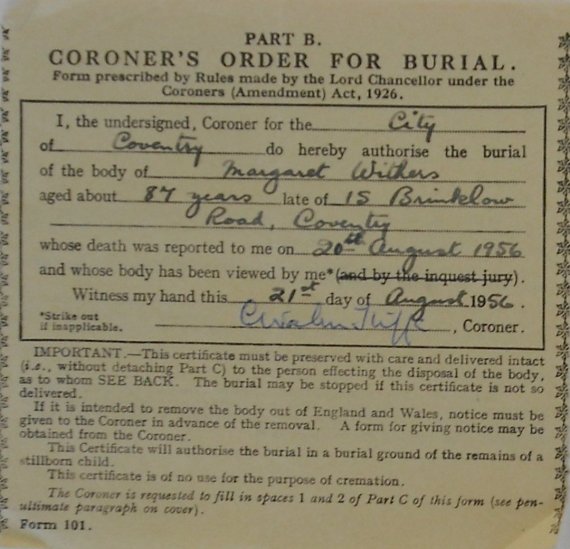 PART B.
CORONER'S ORDER FOR BURIAL.
Form prescribed by Rules made by the Lord Chancellor under the
Coroners (Amendment) Act, 1926.
I, the undersigned, Coroner for the City
of Coventry do hereby authorise the burial
of the body of Margaret Withers
aged about 87 years late of 15 Brinklow
Road, Coventry
whose death was reported to me on 20th August 1956
and whose body has been viewed by me*(and by the inquest jury).
Witness my hand this 21st day of August 1956.
*Strike out
if inapplicable. , Coroner.
IMPORTANT.—This certificate must be preserved with care and delivered intact
(i.e., without detaching Part C) to the person effecting the disposal of the body,
as to whom SEE BACK. The burial may be stopped if this certificate is not so
delivered.
If it is intended to remove the body out of England and Wales, notice must be
given to the Coroner in advance of the removal. A form for giving notice may be
obtained from the Coroner.
This Certificate will authorise the burial in a burial ground of the remains of a
stillborn child.
This certificate is of no use for the purpose of cremation.
The Coroner is requested to fill in spaces 1 and 2 of Part C of this form (see pen-
ultimate paragraph on cover).
Form 101.